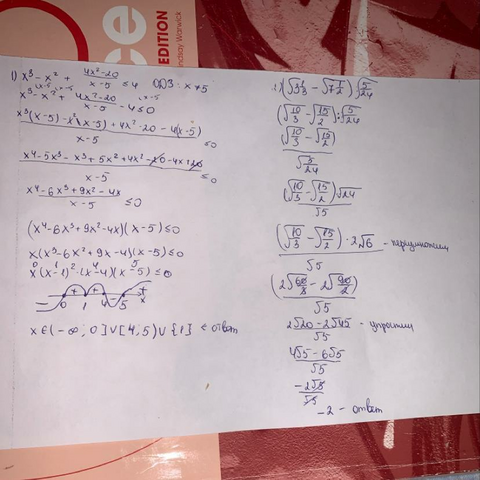 ce
EDITION
Lindsay Warwick
1) x³ - x² + (4x²-20)/(x-5) ≤ 4 ОДЗ: x≠5
x³ - x² + (4x²-20)/(x-5) - 4 ≤ 0
(x³(x-5) - x²(x-5) + 4x² - 20 - 4(x-5))/(x-5) ≤0
(x⁴-5x³-x³+5x²+4x²-20-4x+20)/(x-5) ≤0
(x⁴-6x³+9x²-4x)/(x-5) ≤0
(x⁴-6x³+9x²-4x)(x-5)≤0
x(x³-6x²+9x-4)(x-5)≤0
x(x-1)²·(x-4)(x-5)≤0
0 1 4 5 x
x∈(-∞; 0]∪[4,5)∪{1} ← ответ
2) (√3⅓ - √7½):√(5/24)
(√(10/3) - √(15/2)):√(5/24)
(√(10/3) - √(15/2))/√(5/24)
(√(10/3) - √(15/2))√24/√5
(√(10/3) - √(15/2))·2√6/√5 - перемножим
(2√(60/3) - 2√(90/2))/√5
(2√20 - 2√45)/√5 - упростим
(4√5 - 6√5)/√5
-2√5/√5
-2 - ответ